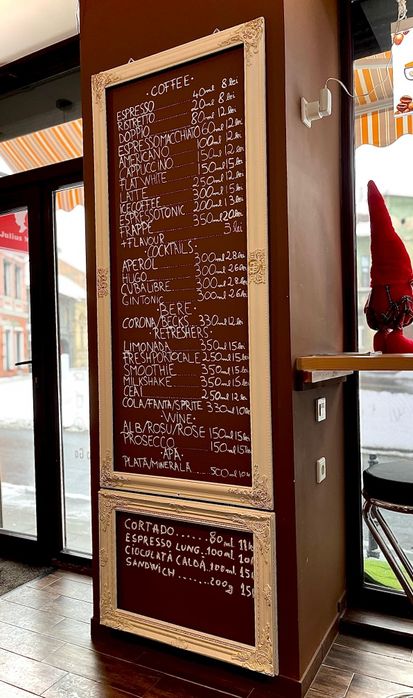 ·COFFEE·
ESPRESSO 40ml 8 lei
RISTRETTO 20ml 8 lei
DOPPIO 80ml 12 lei
ESPRESSO MACCHIATO 60ml 12 lei
AMERICANO 100ml 12 lei
CAPPUCCINO 150ml 12 lei
FLAT WHITE 150ml 15 lei
LATTE 250ml 12 lei
ICE COFFEE 300ml 15 lei
ESPRESSOTONIC 200ml 13 lei
FRAPPE 350ml 20 lei
+FLAVOUR 3 lei
·COCKTAILS·
APEROL 300ml 28 lei
HUGO 300ml 26 lei
CUBALIBRE 300ml 28 lei
GIN TONIC 300ml 26 lei
·BERE·
CORONA/BECKS 330ml 12 lei
·REFRESHERS·
LIMONADA 350ml 15 lei
FRESH PORTOCALE 250ml 15 lei
SMOOTHIE 350ml 15 lei
MILKSHAKE 350ml 15 lei
CEAI 250ml 12 lei
COLA/FANTA/SPRITE 330ml 10 lei
·WINE·
ALB/ROSU/ROSE 150ml 15 lei
PROSECCO 150ml 15 lei
·APA·
PLATA/MINERALA 500ml 10 lei
CORTADO....... 80ml 11 l
ESPRESSO LUNG. 100ml. 10
CIOCOLATĂ CALDĂ. 100ml. 15
SANDWICH....... 200g 15
Julius